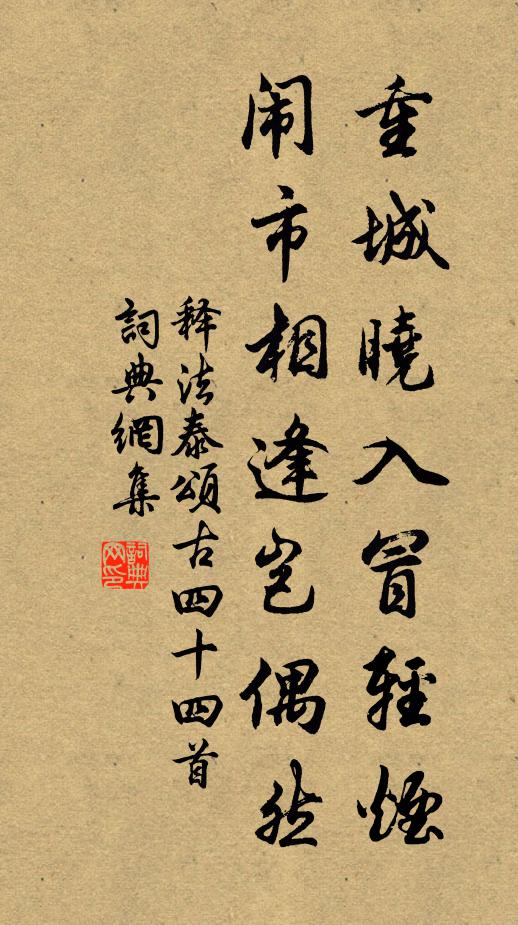 重城曉入冒輕煙
闹市相逢岂偶然
释法泰頌古四十四首
詞典網集
詞典
网印